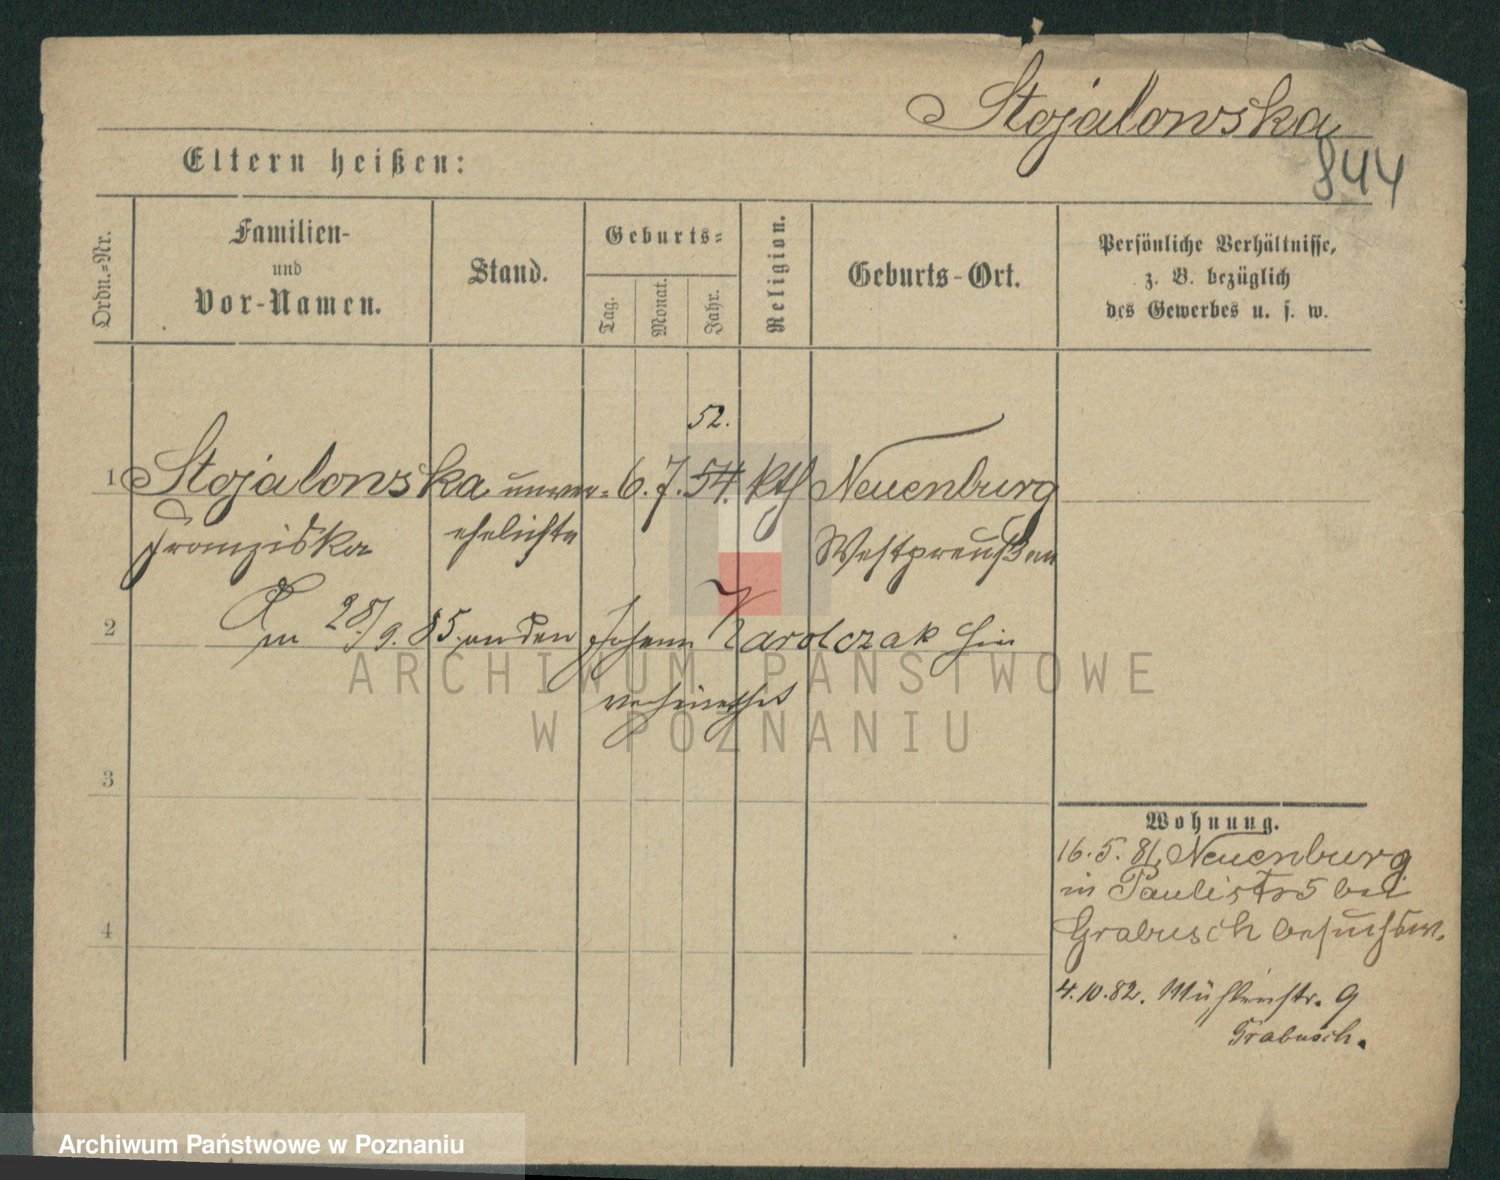 Stojalowska
844
Eltern heißen:
Ordn.-Nr.
Familien-
und
Vor-Namen.
Stand.
Geburts-
Tag.
Monat.
Jahr.
Religion.
Geburts-Ort.
Persönliche Verhältnisse,
z. B. bezüglich
des Gewerbes u. s. w.
52.
1 Stojalowska unver- 6. 7. 54. kth Neuenburg
Franziska ehelichte Westpreußen
2 Am 28/9. 85 an den Johann Karolczak hier
verheirathet
ARCHIWUM PAŃSTWOWE
W POZNANIU
3
Wohnung.
16. 5. 81. Neuenburg
in Paulistr 5 bei
4 Grabusch besuchsw.
4. 10. 82. Mühlenstr. 9
Grabusch.
Archiwum Państwowe w Poznaniu